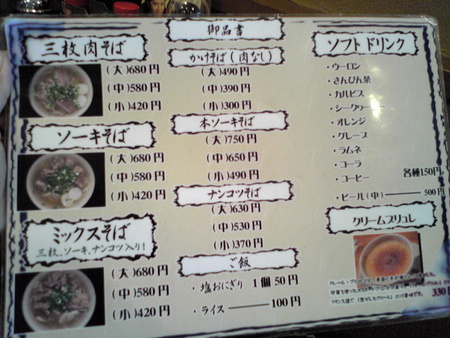 御品書
三枚肉そば
(大)680円
(中)580円
(小)420円
ソーキそば
(大)680円
(中)580円
(小)420円
ミックスそば
三枚、ソーキ、ナンコツ入り!
(大)680円
(中)580円
(小)420円
かけそば(肉なし)
(大)490円
(中)390円
(小)300円
本ソーキそば
(大)750円
(中)650円
(小)490円
ナンコツそば
(大)630円
(中)530円
(小)370円
ご飯
・塩おにぎり 1個 50円
・ライス 100円
ソフトドリンク
・ウーロン
・さんぴん茶
・カルピス
・シークヮーサー
・オレンジ
・グレープ
・ラムネ
・コーラ
・コーヒー 各種150円
・ビール(中) 500円
クリームブリュレ
330